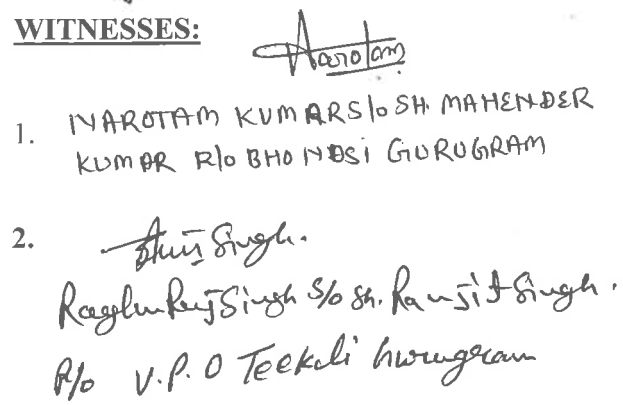 WITNESSES:
Narotam
1. NAROTAM KUMAR S/o SH. MAHENDER
KUMAR R/o BHONDSI GURUGRAM
2. Singh.
Singh S/o Sh. Ranjit Singh.
R/o V.P.O Teekali Gurugram